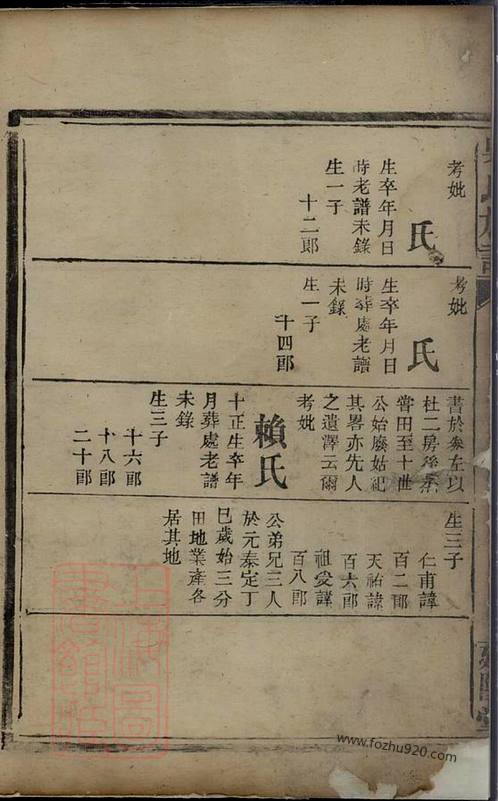 考妣
氏
生卒年月日
時老譜未錄
生一子
十二郎
考妣
氏
生卒年月日
時葬處老譜
未錄
生一子
十四郎
書於叅左以
杜二房孫
甞田至十世
公始廢姑祀
其畧亦先人
之遺澤云爾
考妣
賴氏
十正生卒年
月葬處老譜
未錄
生三子
十六郎
十八郎
二十郎
生三子
仁甫諱
百二郎
天祐諱
百六郎
祖受諱
百八郎
公弟兄三人
於元泰定丁
巳歲始三分
田地業產各
居其地
www.fozhu920.com